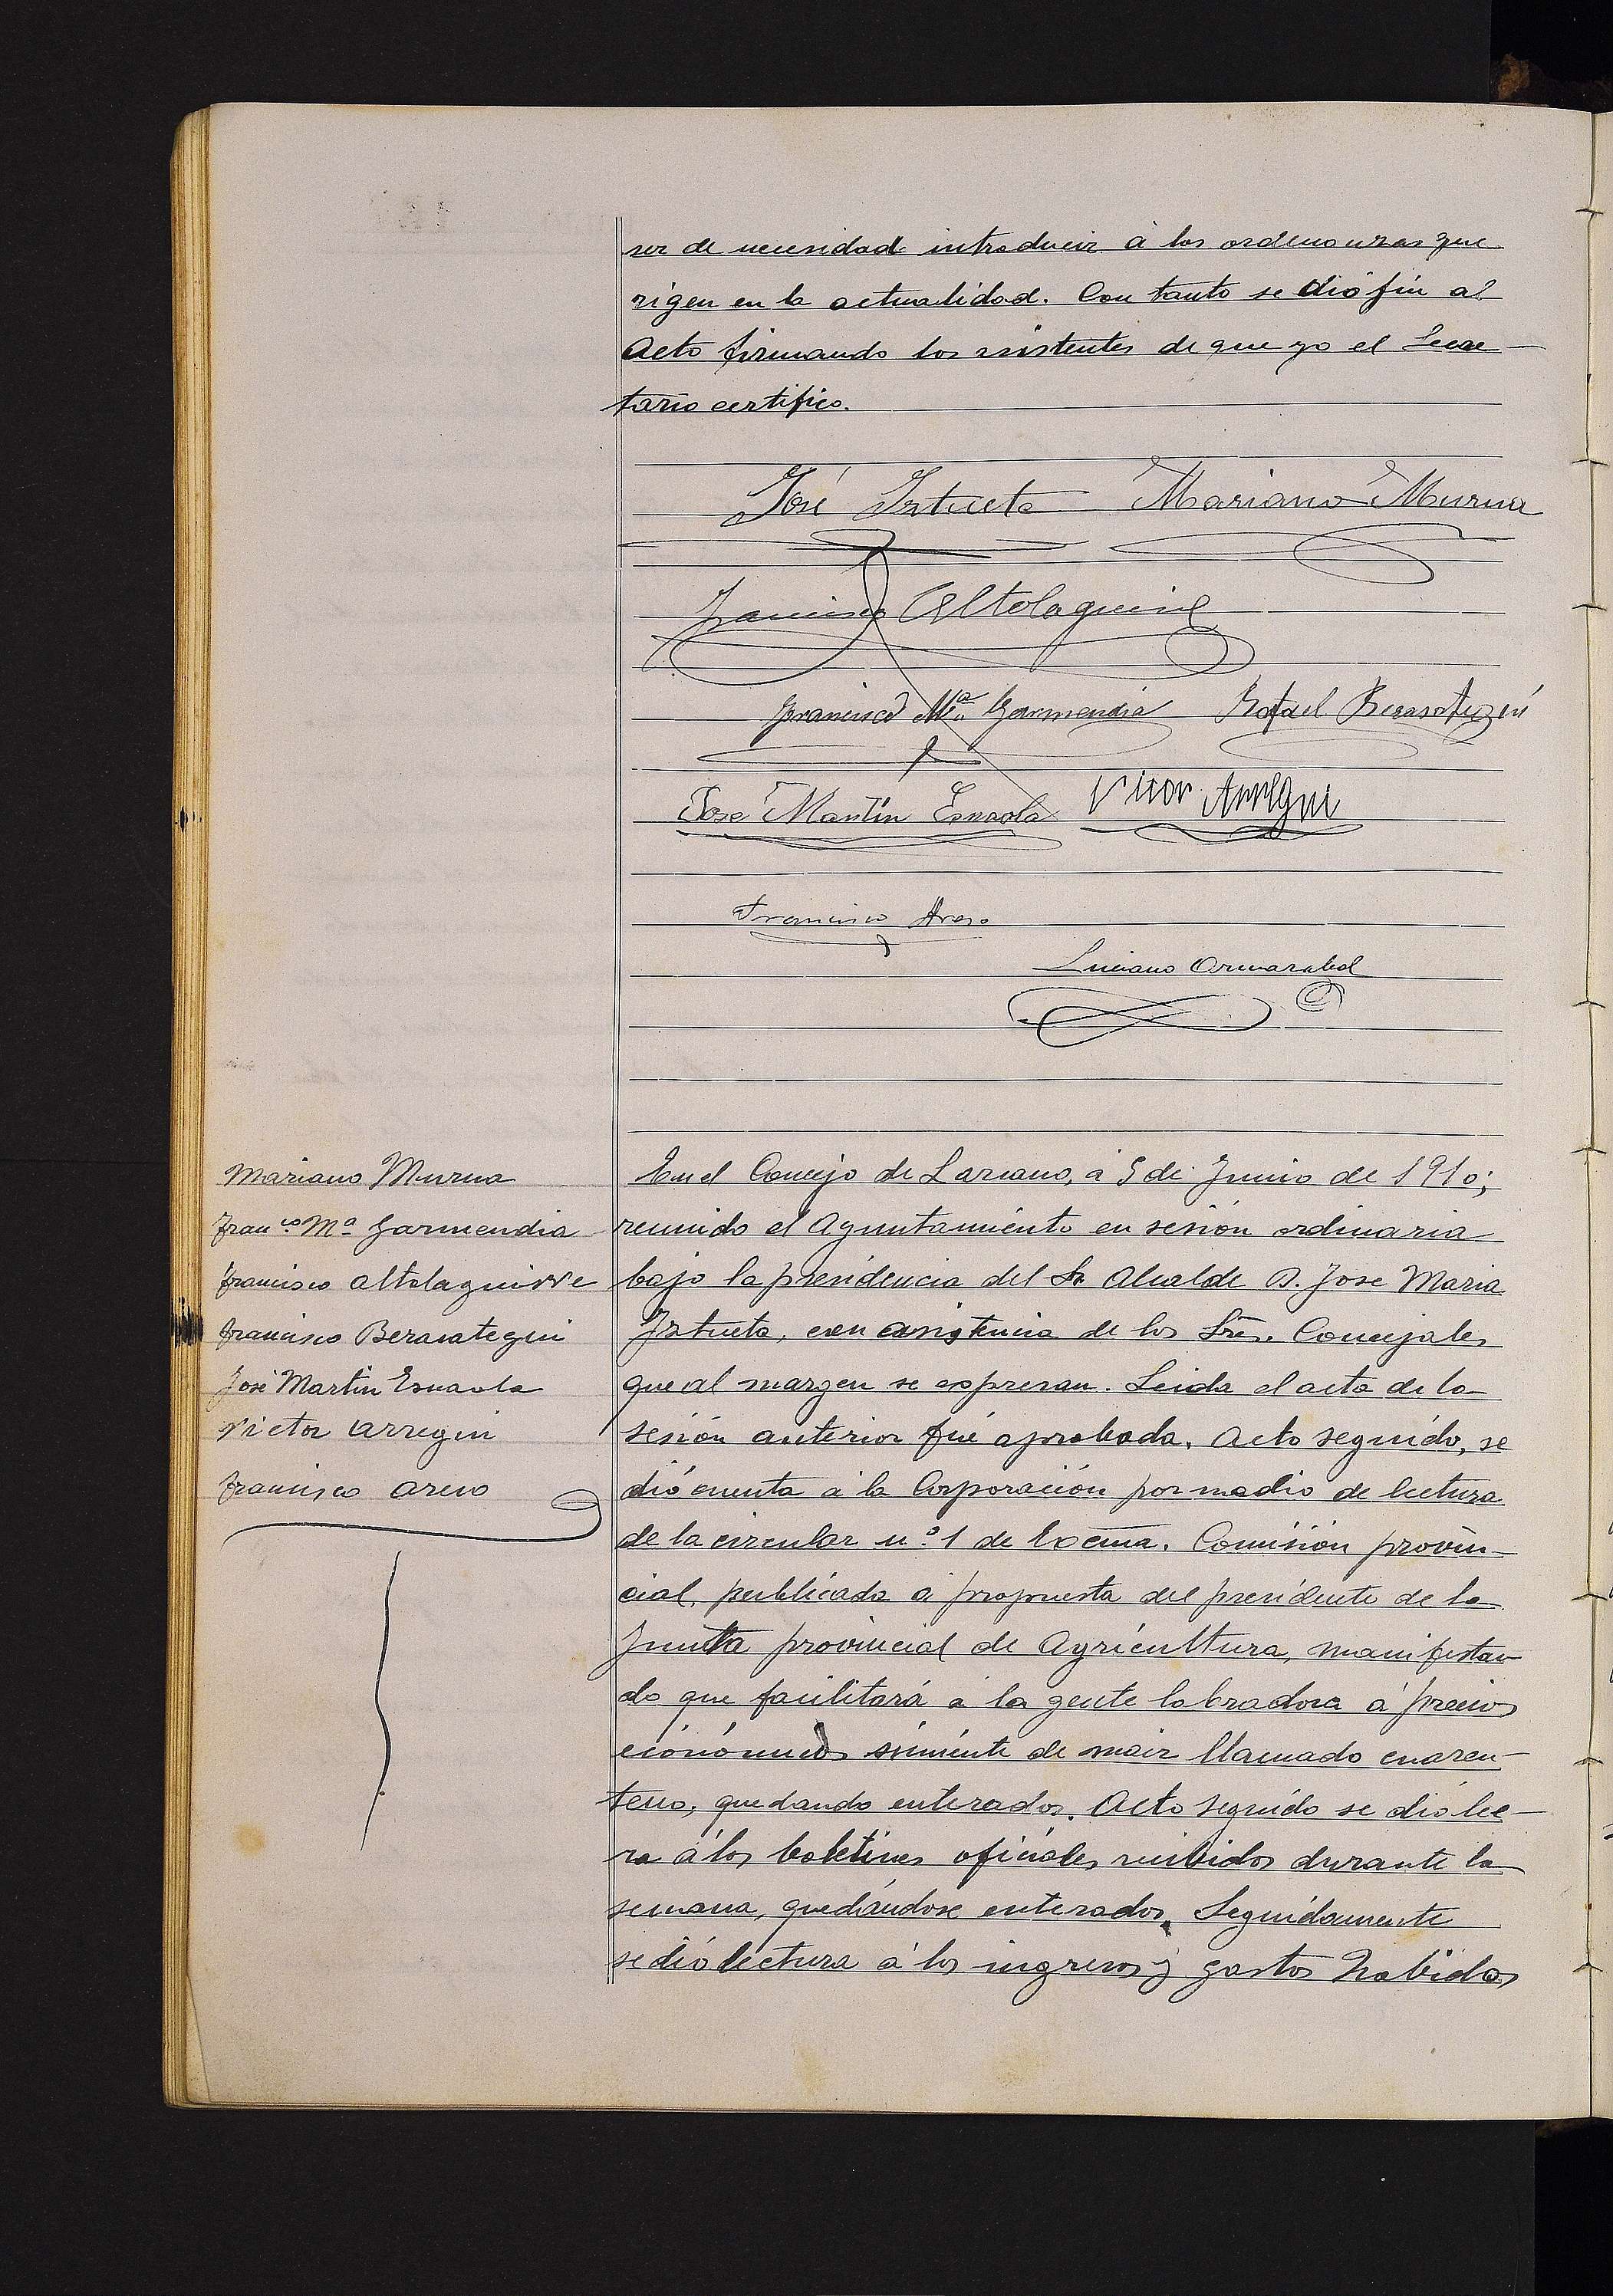 ser de necesidad introducir á las ordenanzas que
rigen en la actualidad. Con tanto se dió fin al
Acto firmando los asistentes de que yo el Secre-
tario certifico.
José Iztueta Mariano Murua
Francisco Altolaguirre
Francisco Mª Garmendia Rafael Berasategui
Jose Martín Esnaola Victor Arregui
Francisco Areso
Luciano Ormazabal
Mariano Murua
Franco Mª Garmendia
Francisco Altolaguirre
Francisco Berasategui
José Martin Esnaola
Victor Arregui
Francisco Areso
En el Concejo de Lazcano, á 5 de Junio de 1910;
reunido el Ayuntamiento en sesión ordinaria
bajo la presidencia del Sr Alcalde D. Jose Maria
Iztueta, con asistencia de los Sres. Concejales
que al margen se expresan. Leida el acta de la
sesión anterior fué aprobada. Acto seguido, se
dió cuenta á la Corporación por medio de lectura
de la circular n.º 1 de Excma. Comisión provin-
cial, publicada á propuesta del presidente de la
Junta provincial de Agricultura, manifestan
do que facilitará á la gente labradora á precios
económicos simiente de maiz llamado cuaren-
teno, quedando enterados. Acto seguido se dió lec-
ra á los boletines oficiales recibidos durante la
semana, quedándose enterados. Seguidamente
se dió lectura á los ingresos y gastos habidos